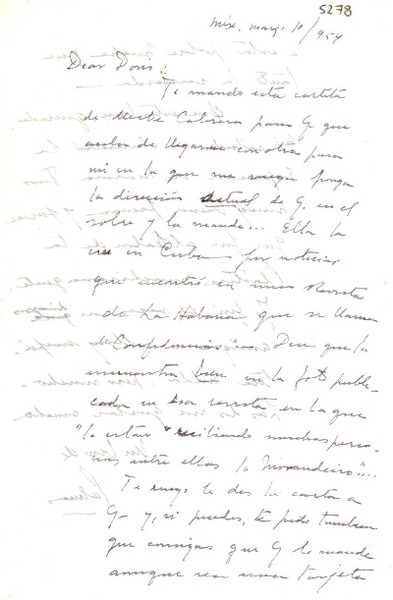 5278
Méx, mayo 10/954
Dear Doris:
Te mando esta cartita
de Mecha Cabrera para G que
acaba de llegarme con otra para
mí en la que me ruega ponga
la dirección actual de G. en el
sobre y la mande... Ella la
cree en Cuba por noticias
que encontró en una Revista
de La Habana que se llama
"Confidencias"... Dice que la
encuentra bien en la foto publi-
cada en esa revista en la que
"la están recibiendo muchas perso-
nas entre ellas la
Te ruego le des la carta a
G y, si puedes, te pido tambien
que consigas que G le mande
aunque sea una tarjeta